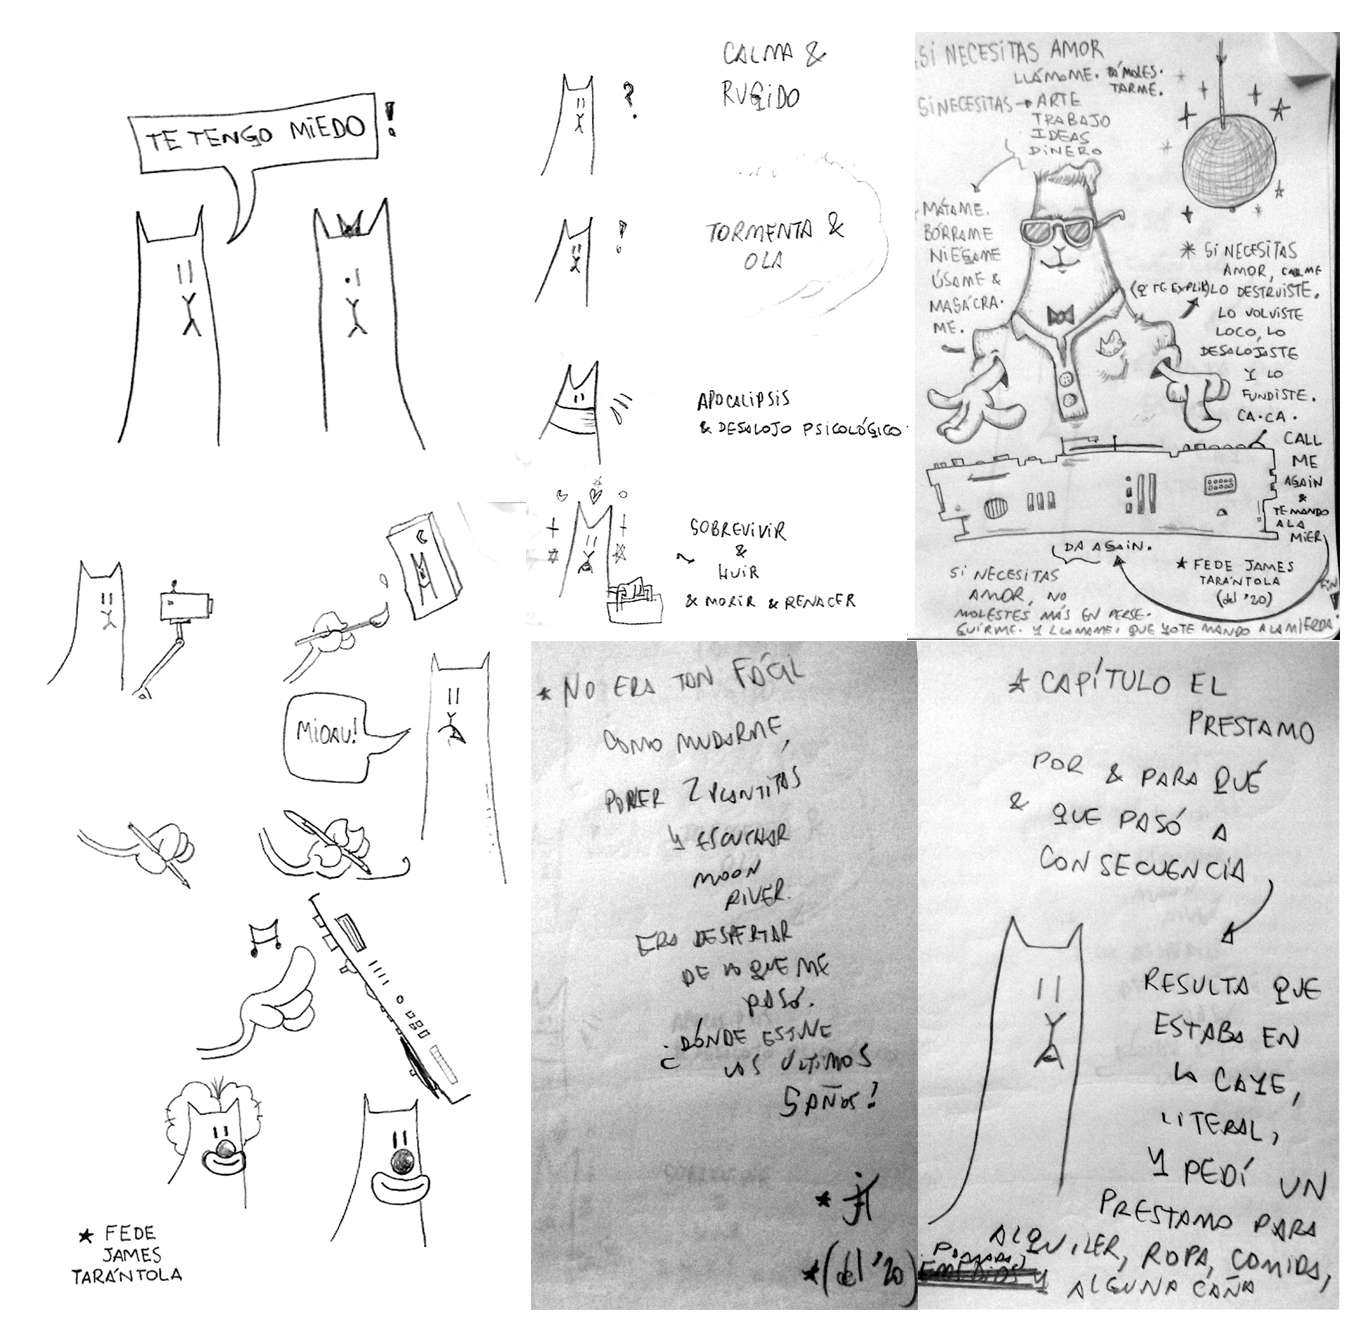 TE TENGO MIEDO!
MIOAU!
* FEDE
JAMES
TARÁNTOLA
?
CALMA &
RUGIDO
!
TORMENTA &
OLA
APOCALIPSIS
& DESALOJO PSICOLÓGICO
SOBREVIVIR
&
HUIR
& MORIR & RENACER
SI NECESITAS AMOR
LLÁMAME.
TARME.
SI NECESITAS → ARTE
TRABAJO
IDEAS
DINERO
MÁTAME.
BÓRRAME
NIÉGAME
ÚSAME &
MASÁCRA-
ME.
* SI NECESITAS
AMOR, CALL ME
LO DESTRUISTE.
LO VOLVISTE
LOCO, LO
DESALOJASTE
Y LO
FUNDISTE.
CA.CA.
CALL
ME
AGAIN
&
TE MANDO
A LA
MIER
DA AGAIN.
* FEDE JAMES
TARÁNTOLA
(del '20)
FIN!
SI NECESITAS
AMOR, NO
MOLESTES MÁS EN PERSE-
GUIRME. Y LLAMAME, QUE YO TE MANDO A LA MIERDA.
* NO ERA TAN FÁCIL
COMO MUDARME,
PONER 2 PLANTITAS
Y ESCUCHAR
MOON
RIVER.
ERA DESPERTAR
DE LO QUE ME
PASÓ.
¿DÓNDE ESTUVE
LOS ÚLTIMOS
5 AÑOS?
* (del '20)
* CAPÍTULO EL
PRESTAMO
POR & PARA QUÉ
& QUE PASÓ A
CONSECUENCIA
RESULTA QUE
ESTABA EN
LA CAYE,
LITERAL,
Y PEDÍ UN
PRESTAMO PARA
ALQUILER, ROPA, COMIDA,
Y ALGUNA CAÑA